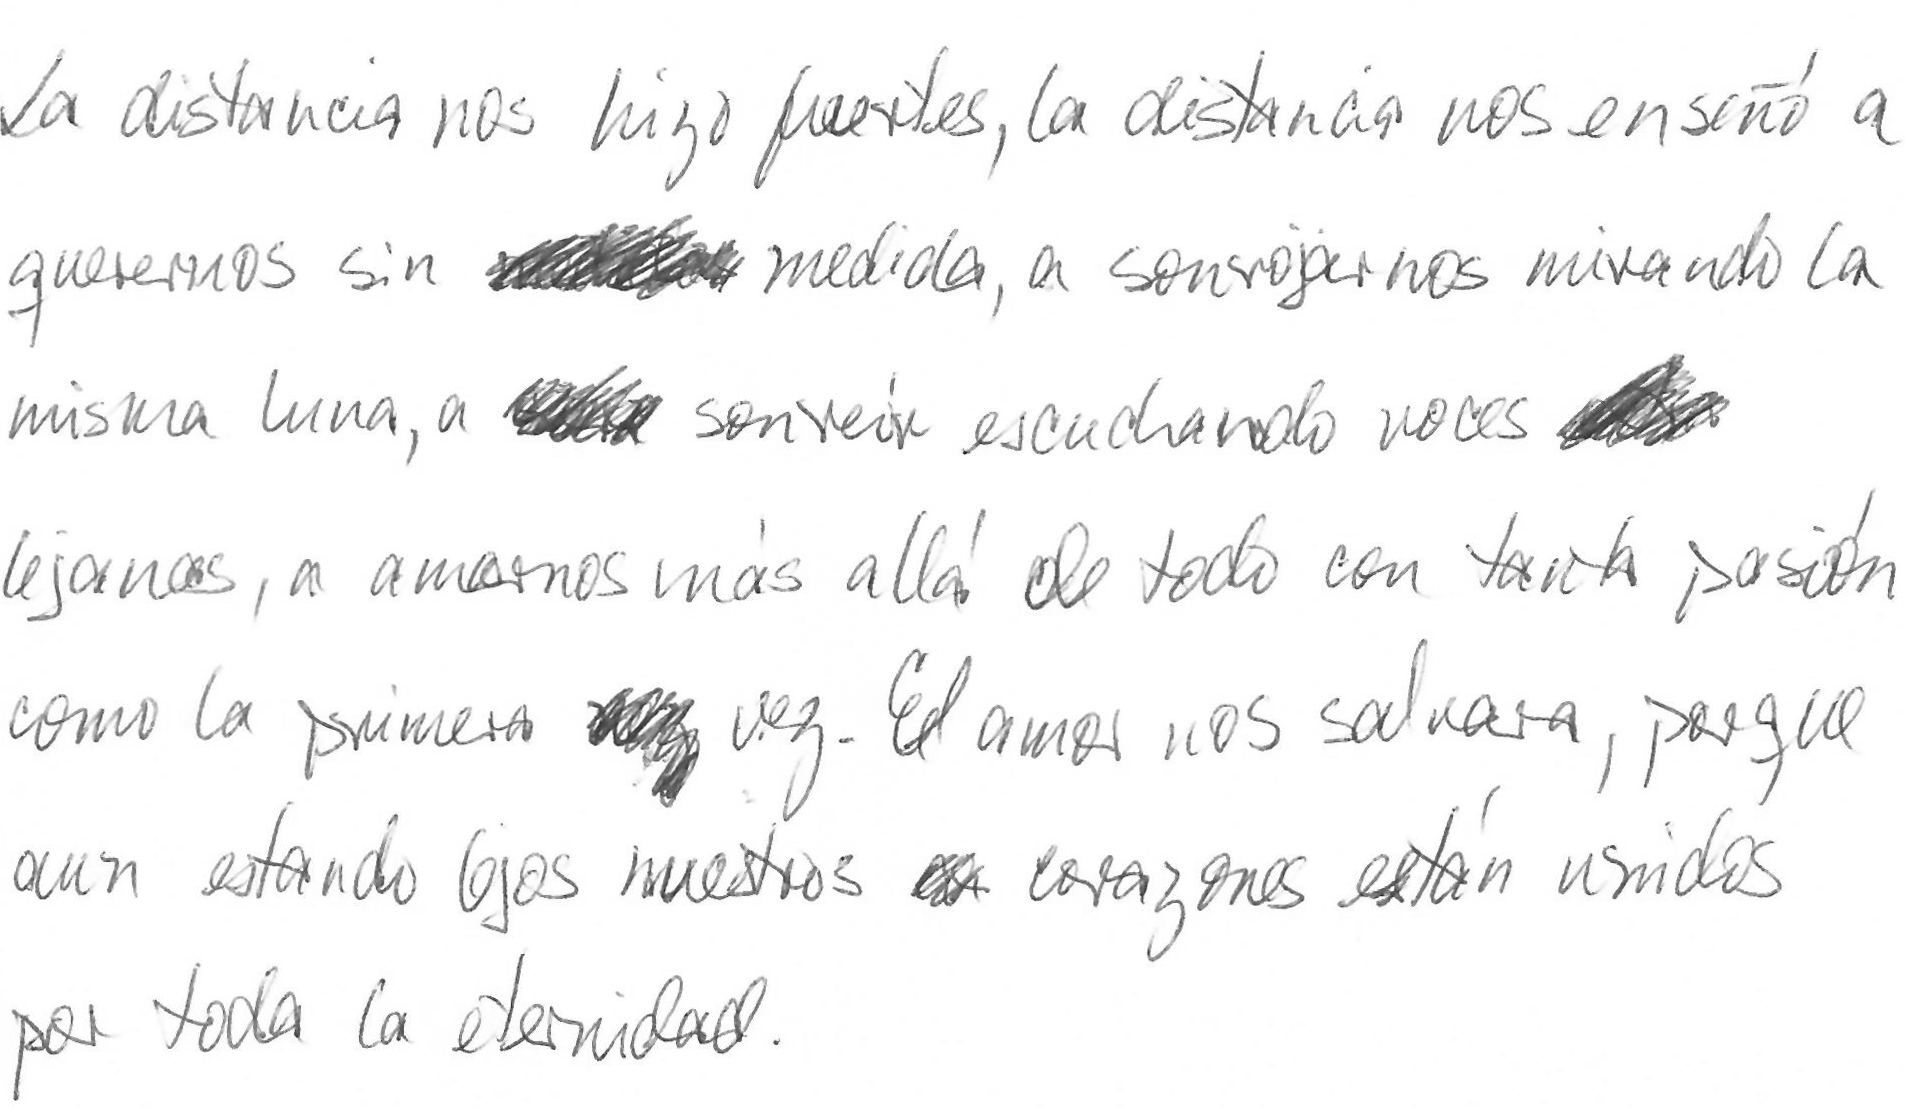 La distancia nos hizo fuertes, la distancia nos enseñó a
querernos sin medida, a sonrojarnos mirando la
misma luna, a sonreír escuchando voces
lejanas, a amarnos más allá de todo con tanta pasión
como la primera vez. El amor nos salvara, porque
aun estando lejos nuestros corazones están unidos
por toda la eternidad.